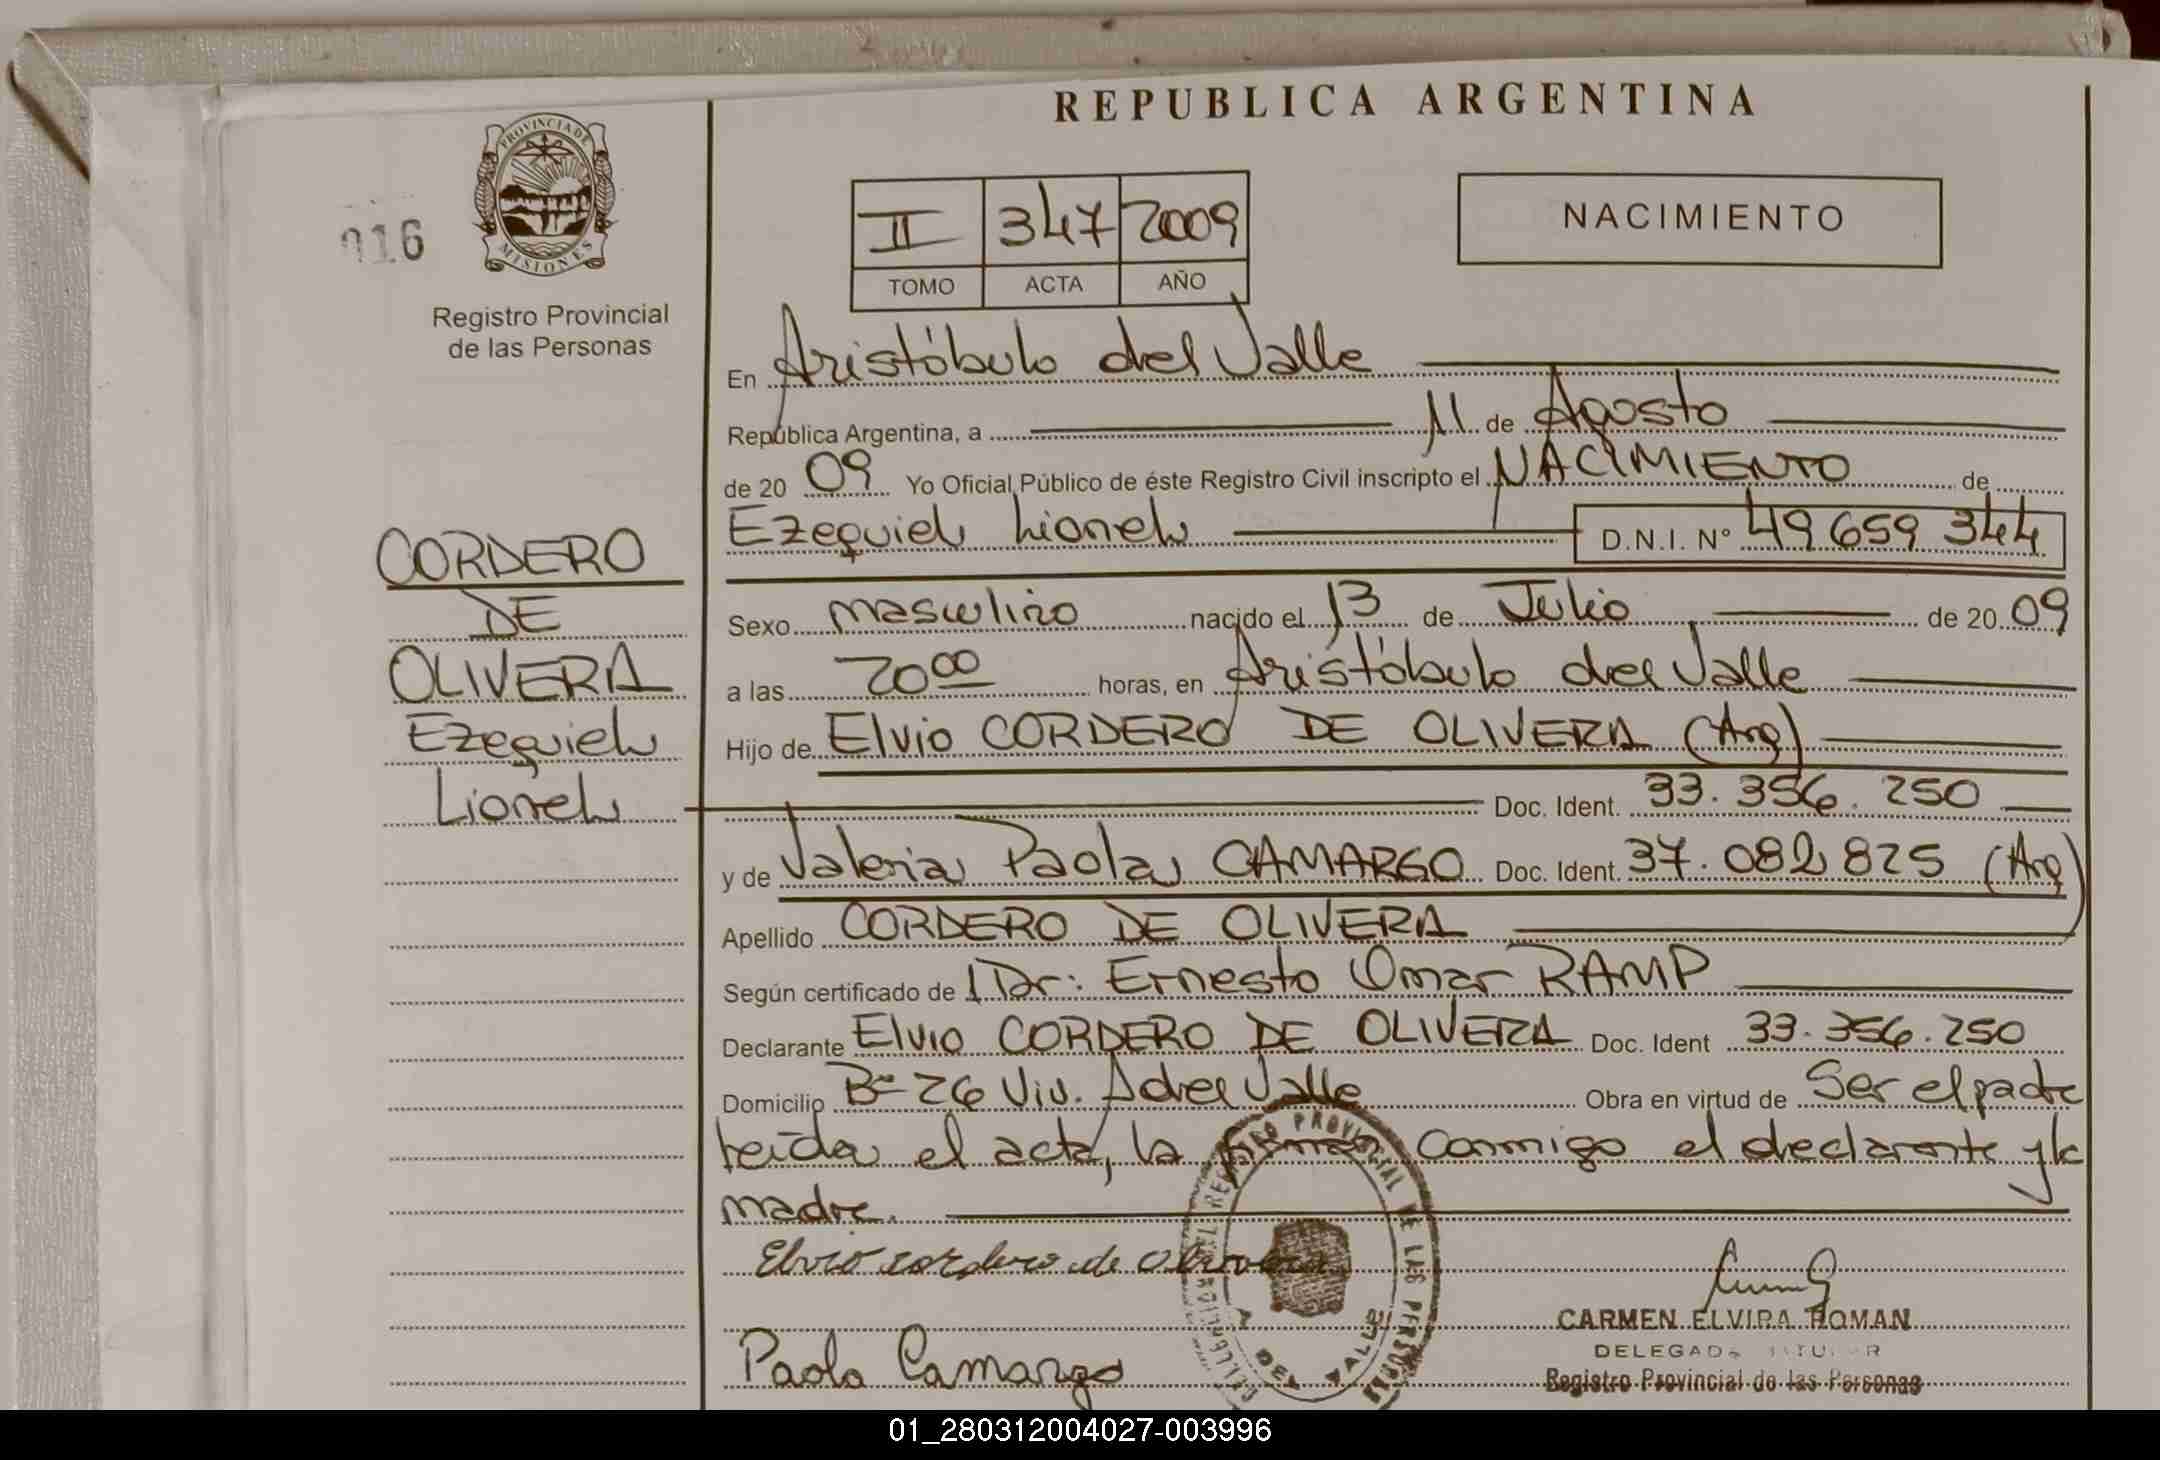 REPUBLICA ARGENTINA
PROVINCIA DE
MISIONES
016
Registro Provincial
de las Personas
II 347 2009
TOMO ACTA AÑO
NACIMIENTO
En Aristóbulo del Valle
República Argentina, a 11 de Agosto
de 20 09 Yo Oficial Público de éste Registro Civil inscripto el NACIMIENTO de
Ezequiel Lionel D.N.I. N° 49 659 344
CORDERO
DE
OLIVERA
Ezequiel
Lionel
Sexo masculino nacido el 13 de Julio de 20 09
a las 20 00 horas, en Aristóbulo del Valle
Hijo de Elvio CORDERO DE OLIVERA (Arg)
Doc. Ident. 33.356.250
y de Valeria Paola CAMARGO Doc. Ident. 37.082 825 (Arg)
Apellido CORDERO DE OLIVERA
Según certificado de l Dr: Ernesto Omar RAMP
Declarante Elvio CORDERO DE OLIVERA Doc. Ident 33.356.250
Domicilio B° 26 Viv. A del Valle Obra en virtud de Ser el padre
leída el acta, la firman conmigo el declarante y la
madre.
Elvio cordero de Olivera
Paola Camargo
REGISTRO PROVINCIAL DE LAS PERSONAS
DEL VALLE
CARMEN ELVIRA ROMAN
DELEGADA TITULAR
Registro Provincial de las Personas
01_280312004027-003996